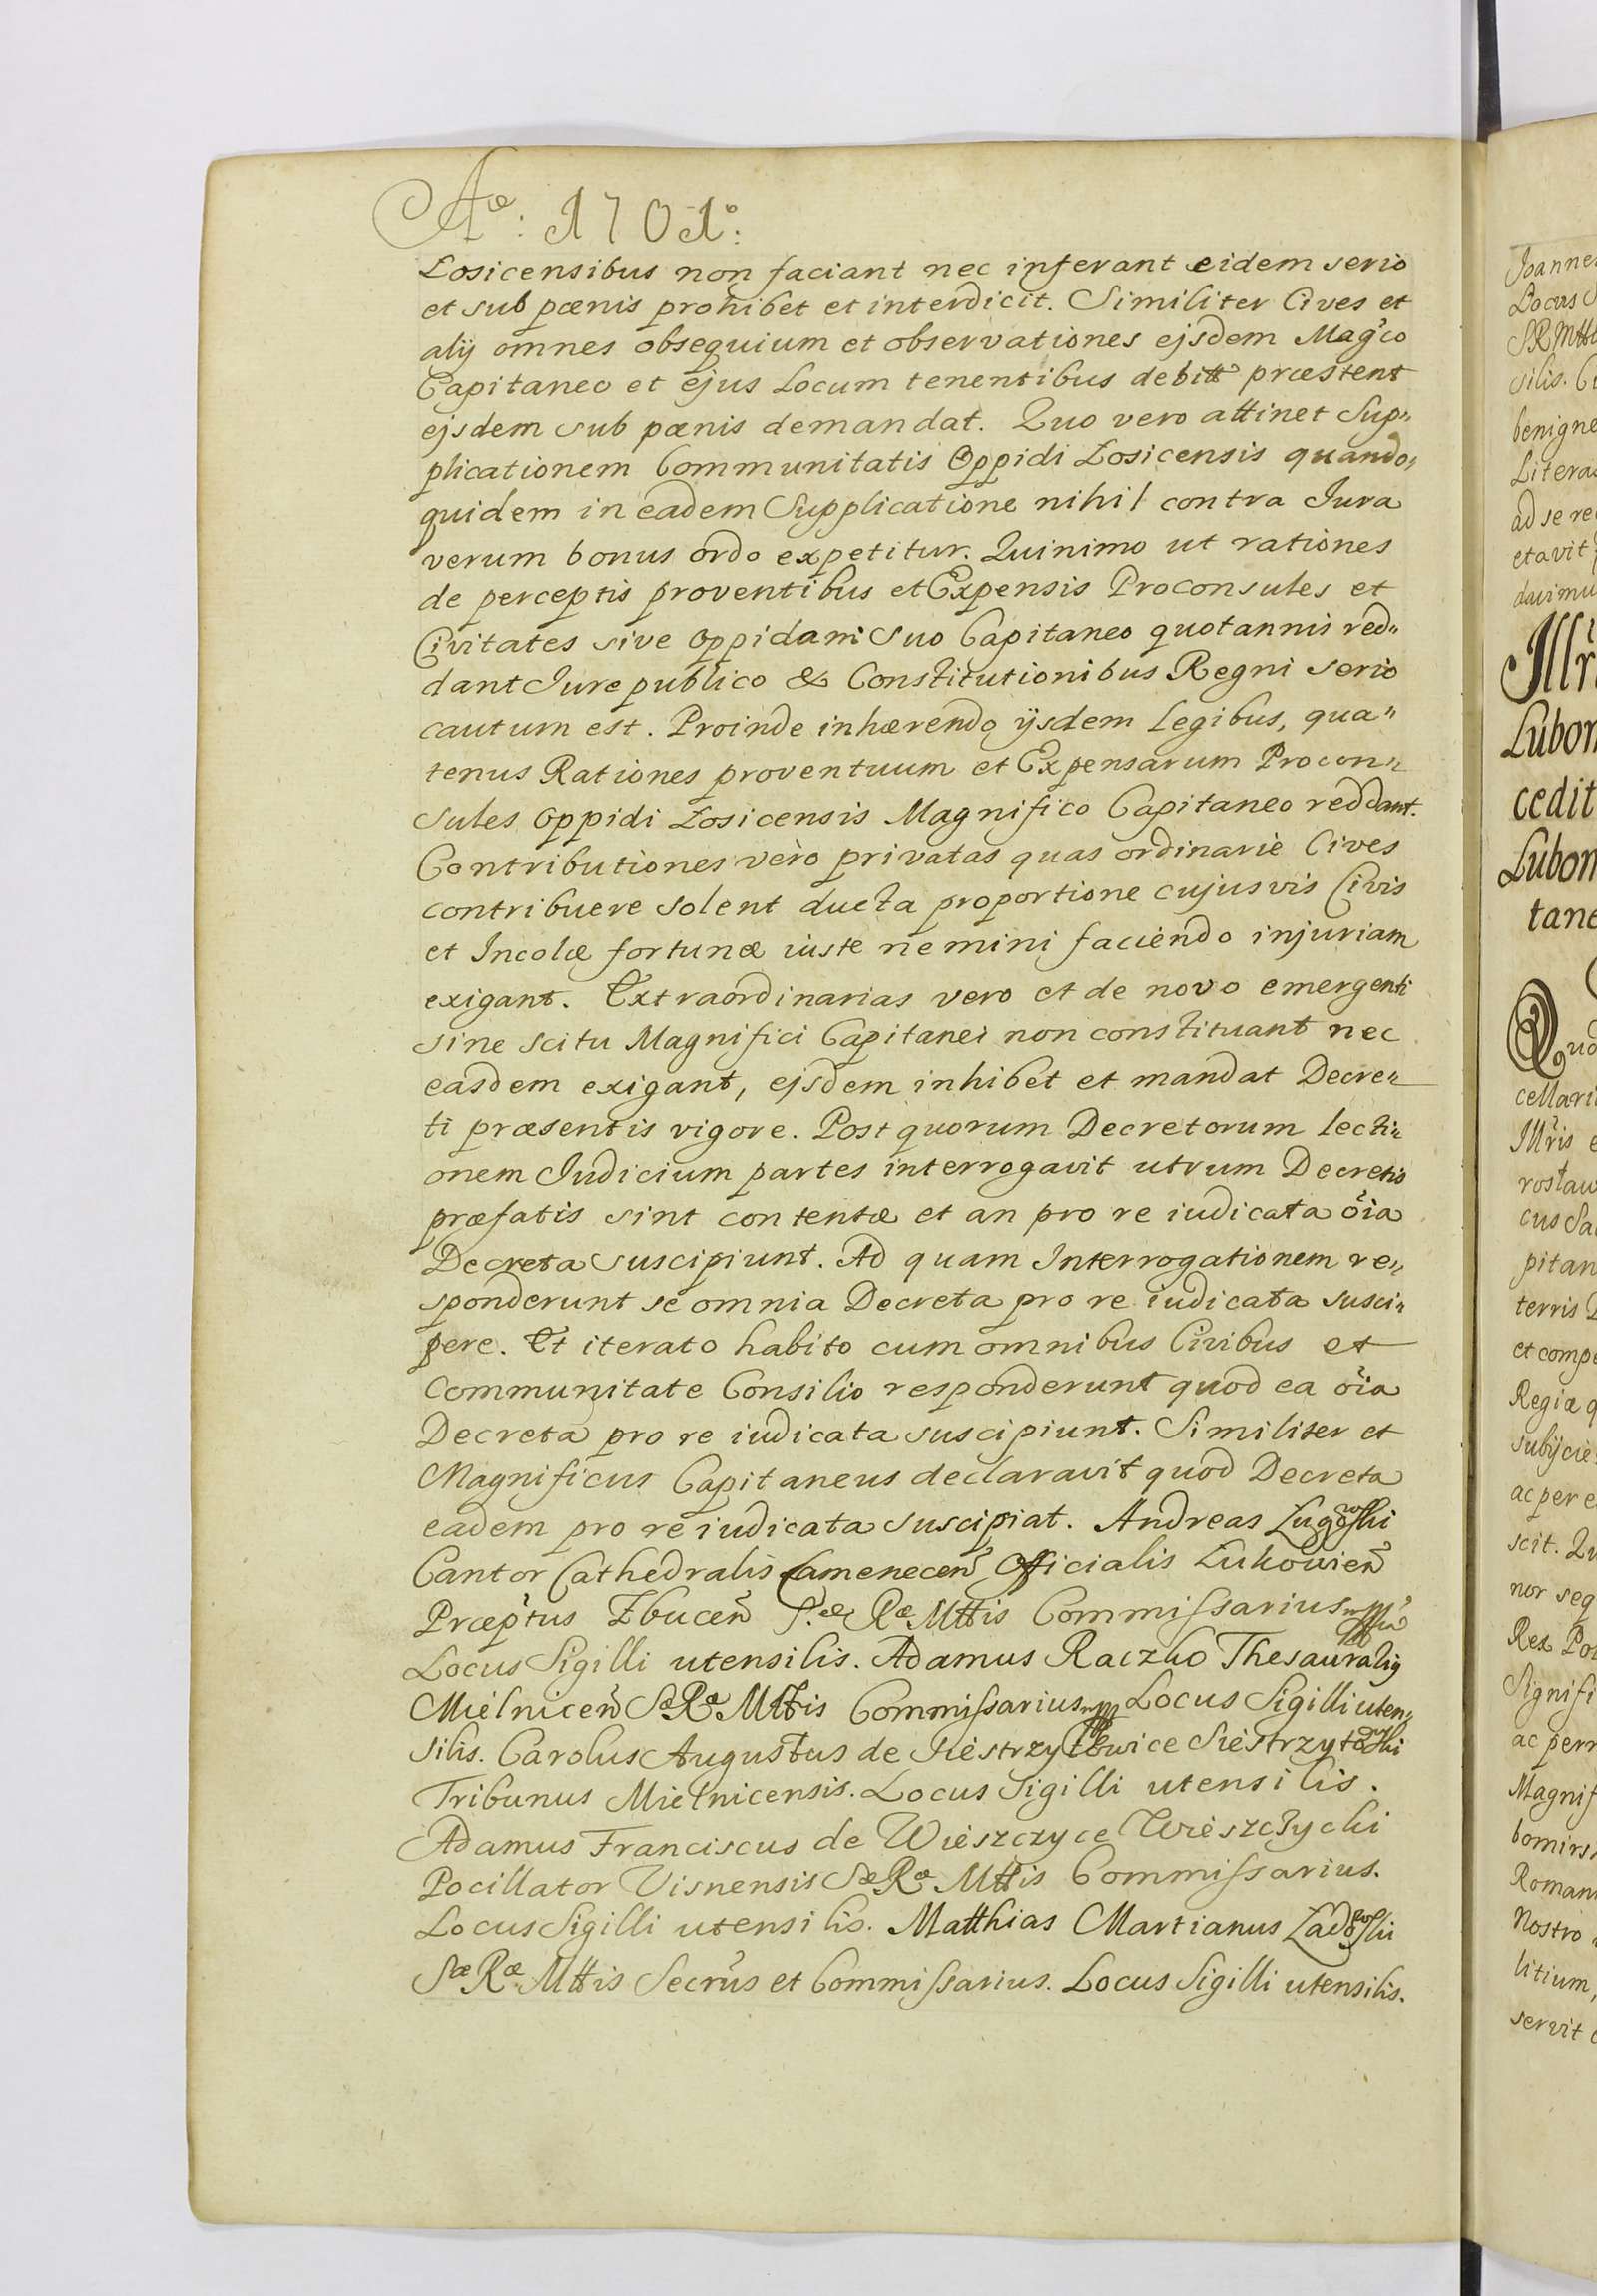 Aō: 1701º:
Losicensibus non faciant nec inferant eidem serio
et sub pœnis prohibet et interdicit. Similiter Cives et
alij omnes obsequium et observationes ejsdem Mag̃co
Capitaneo et ejus Locum tenentibus debitt præstent
ejsdem sub pœnis demandat. Quo vero attinet Sup„
plicationem Communitatis Oppidi Losicensis quando„
quidem in eadem Supplicatione nihil contra Jura
verum bonus ordo expetitur. Quinimo ut rationes
de perceptis proventibus et Expensis Proconsules et
Civitates sive Oppidani Suo Capitaneo quotannis red„
dant Jure publico & Constitutionibus Regni serio
cautum est. Proinde inhærendo ijsdem Legibus, qua„
tenus Rationes proventuum et Expensarum Procon„
sules Oppidi Losicensis Magnifico Capitaneo reddant.
Contributiones vèro privatas quas ordinariè Cives
contribuere solent ducta proportione cujusvis Civis
et Incolæ fortunæ iuste nemini faciendo injuriam
exigant. Extraordinarias vero et de novo emergenti
sine scitu Magnifici Capitanei non constituant nec
easdem exigant, ejsdem inhibet et mandat Decre„
ti præsentis vigore. Post quorum Decretorum lecti„
onem Judicium partes interrogavit utrum Decretis
præfatis sint contentæ et an pro re iudicata õia
Decreta suscipiunt. Ad quam Interrogationem re„
sponderunt se omnia Decreta pro re iudicata susci„
pere. Et iterato habito cum omnibus Civibus et
Communitate Consilio responderunt quod ea õia
Decreta pro re iudicata suscipiunt. Similiter et
Magnificus Capitaneus declaravit quod Decreta
eadem pro re iudicata suscipiat. Andreas Lugowski
Cantor Cathedralis Camenecen̄ Officialis Lukowien̄
Præp̃tus Zbucen̄ S.æ Ræ Mttis Commissarius
Locus Sigilli utensilis. Adamus Raczko Thesaurarig
Mielnicen̄ Sæ Ræ Mttis Commissarius mpp Locus Sigilli uten„
silis. Carolus Augustus de Siestrzytowice Siestrzytowski
Tribunus Mielnicensis. Locus Sigilli utensilis.
Adamus Franciscus de Wieszczyce Wieszczycki
Pocillator Visnensis Sæ Ræ Mttis Commissarius.
Locus Sigilli utensilis. Matthias Martianus Ladowski
Sæ Ræ Mttis Secrũs et Commissarius. Locus Sigilli utensilis.